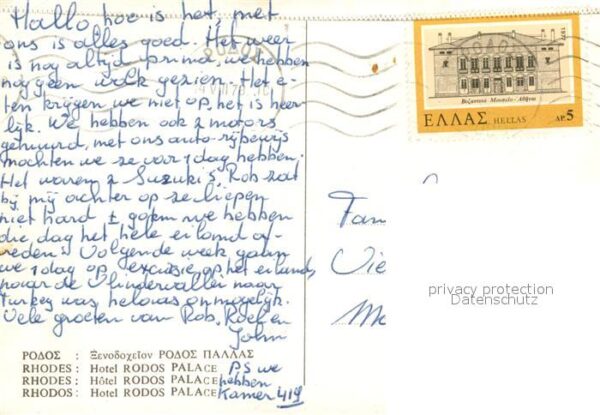 Hallo, hoe is het, met
ons is alles goed. Het weer
is nog altijd prima, we hebben
nog geen wolk gezien. Het e-
ten krijgen we niet op, het is heer
lijk. We hebben ook 2 motors
gehuurd, met ons auto-rijbewijs
mochten we ze voor 1 dag hebben.
Het waren 2 Suzuki's, Rob zat
bij mij achter op ze liepen
niet hard ± 90 km we hebben
die dag het hele eiland af-
reden. Volgende week gaan
we 1 dag op excursie op het eiland,
naar de Vlindervallei naar
Turkey was helaas onmogelijk.
Vele groeten van Rob, Roel en
John
PS we
hebben
Kamer 419
ΡΟΔΟΣ : Ξενοδοχεῖον ΡΟΔΟΣ ΠΑΛΛΑΣ
RHODES : Hotel RODOS PALACE
RHODES : Hôtel RODOS PALACE
RHODOS : Hotel RODOS PALACE
1977
Βυζαντινό Μουσείο - Ἀθῆναι
ΕΛΛΑΣ HELLAS ΔΡ. 5
Fam
privacy protection
Datenschutz